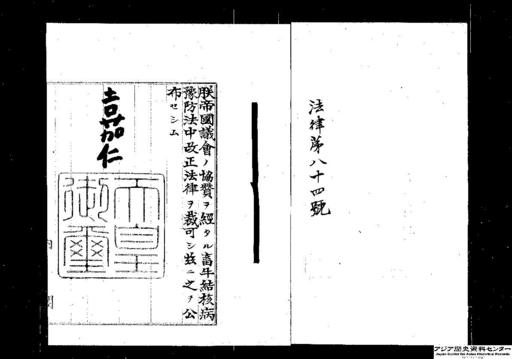 法律第八十四號
朕帝國議會ノ協贊ヲ經タル畜牛結核病
豫防法中改正法律ヲ裁可シ玆ニ之ヲ公
布セシム
嘉仁
天皇
御璽
内閣
アジア歴史資料センター
Japan Center for Asian Historical Records